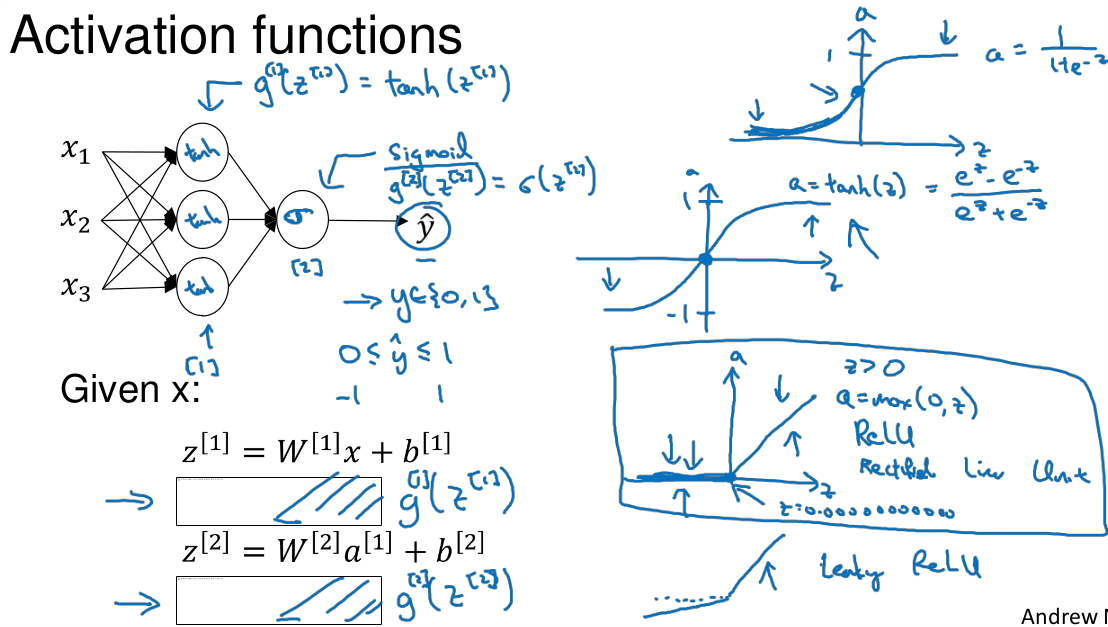 Activation functions
g^[1](z^[1]) = tanh(z^[1])
x₁
x₂
x₃
tanh
tanh
tanh
[1]
sigmoid
g^[2](z^[2]) = σ(z^[2])
σ
[2]
ŷ
→ y∈{0,1}
0 ≤ ŷ ≤ 1
-1 1
Given x:
z^[1] = W^[1]x + b^[1]
→ g^[1](z^[1])
z^[2] = W^[2]a^[1] + b^[2]
→ g^[2](z^[2])
a
1
z
a = 1/(1+e^-z)
a
1
-1
z
a = tanh(z) = (e^z - e^-z)/(e^z + e^-z)
a
z
z>0
a = max(0,z)
ReLU
Rectified Linear Unit
z=0.00000000000
Leaky ReLU
Andrew